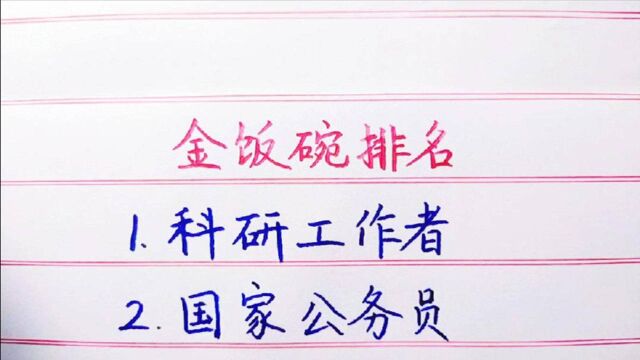 金饭碗排名
1.科研工作者
2.国家公务员